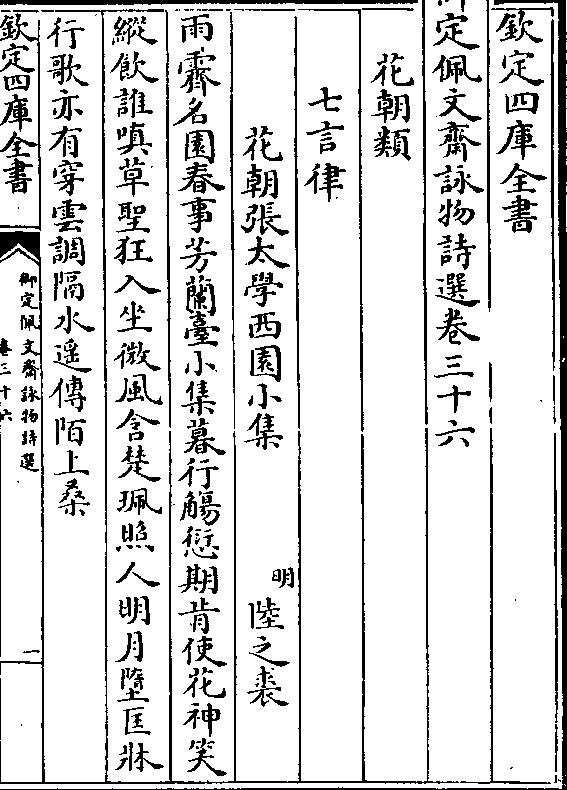 欽定四庫全書
御定佩文齋詠物詩選卷三十六
花朝類
七言律
花朝張太學西園小集 明 陸之裘
雨霽名園春事芳蘭臺小集暮行觴愆期肯使花神笑
縱飲誰嗔草聖狂入坐微風含楚珮照人明月墮匡牀
行歌亦有穿雲調隔水遥傳陌上桑
欽定四庫全書
御定佩文齋詠物詩選
卷三十六
一